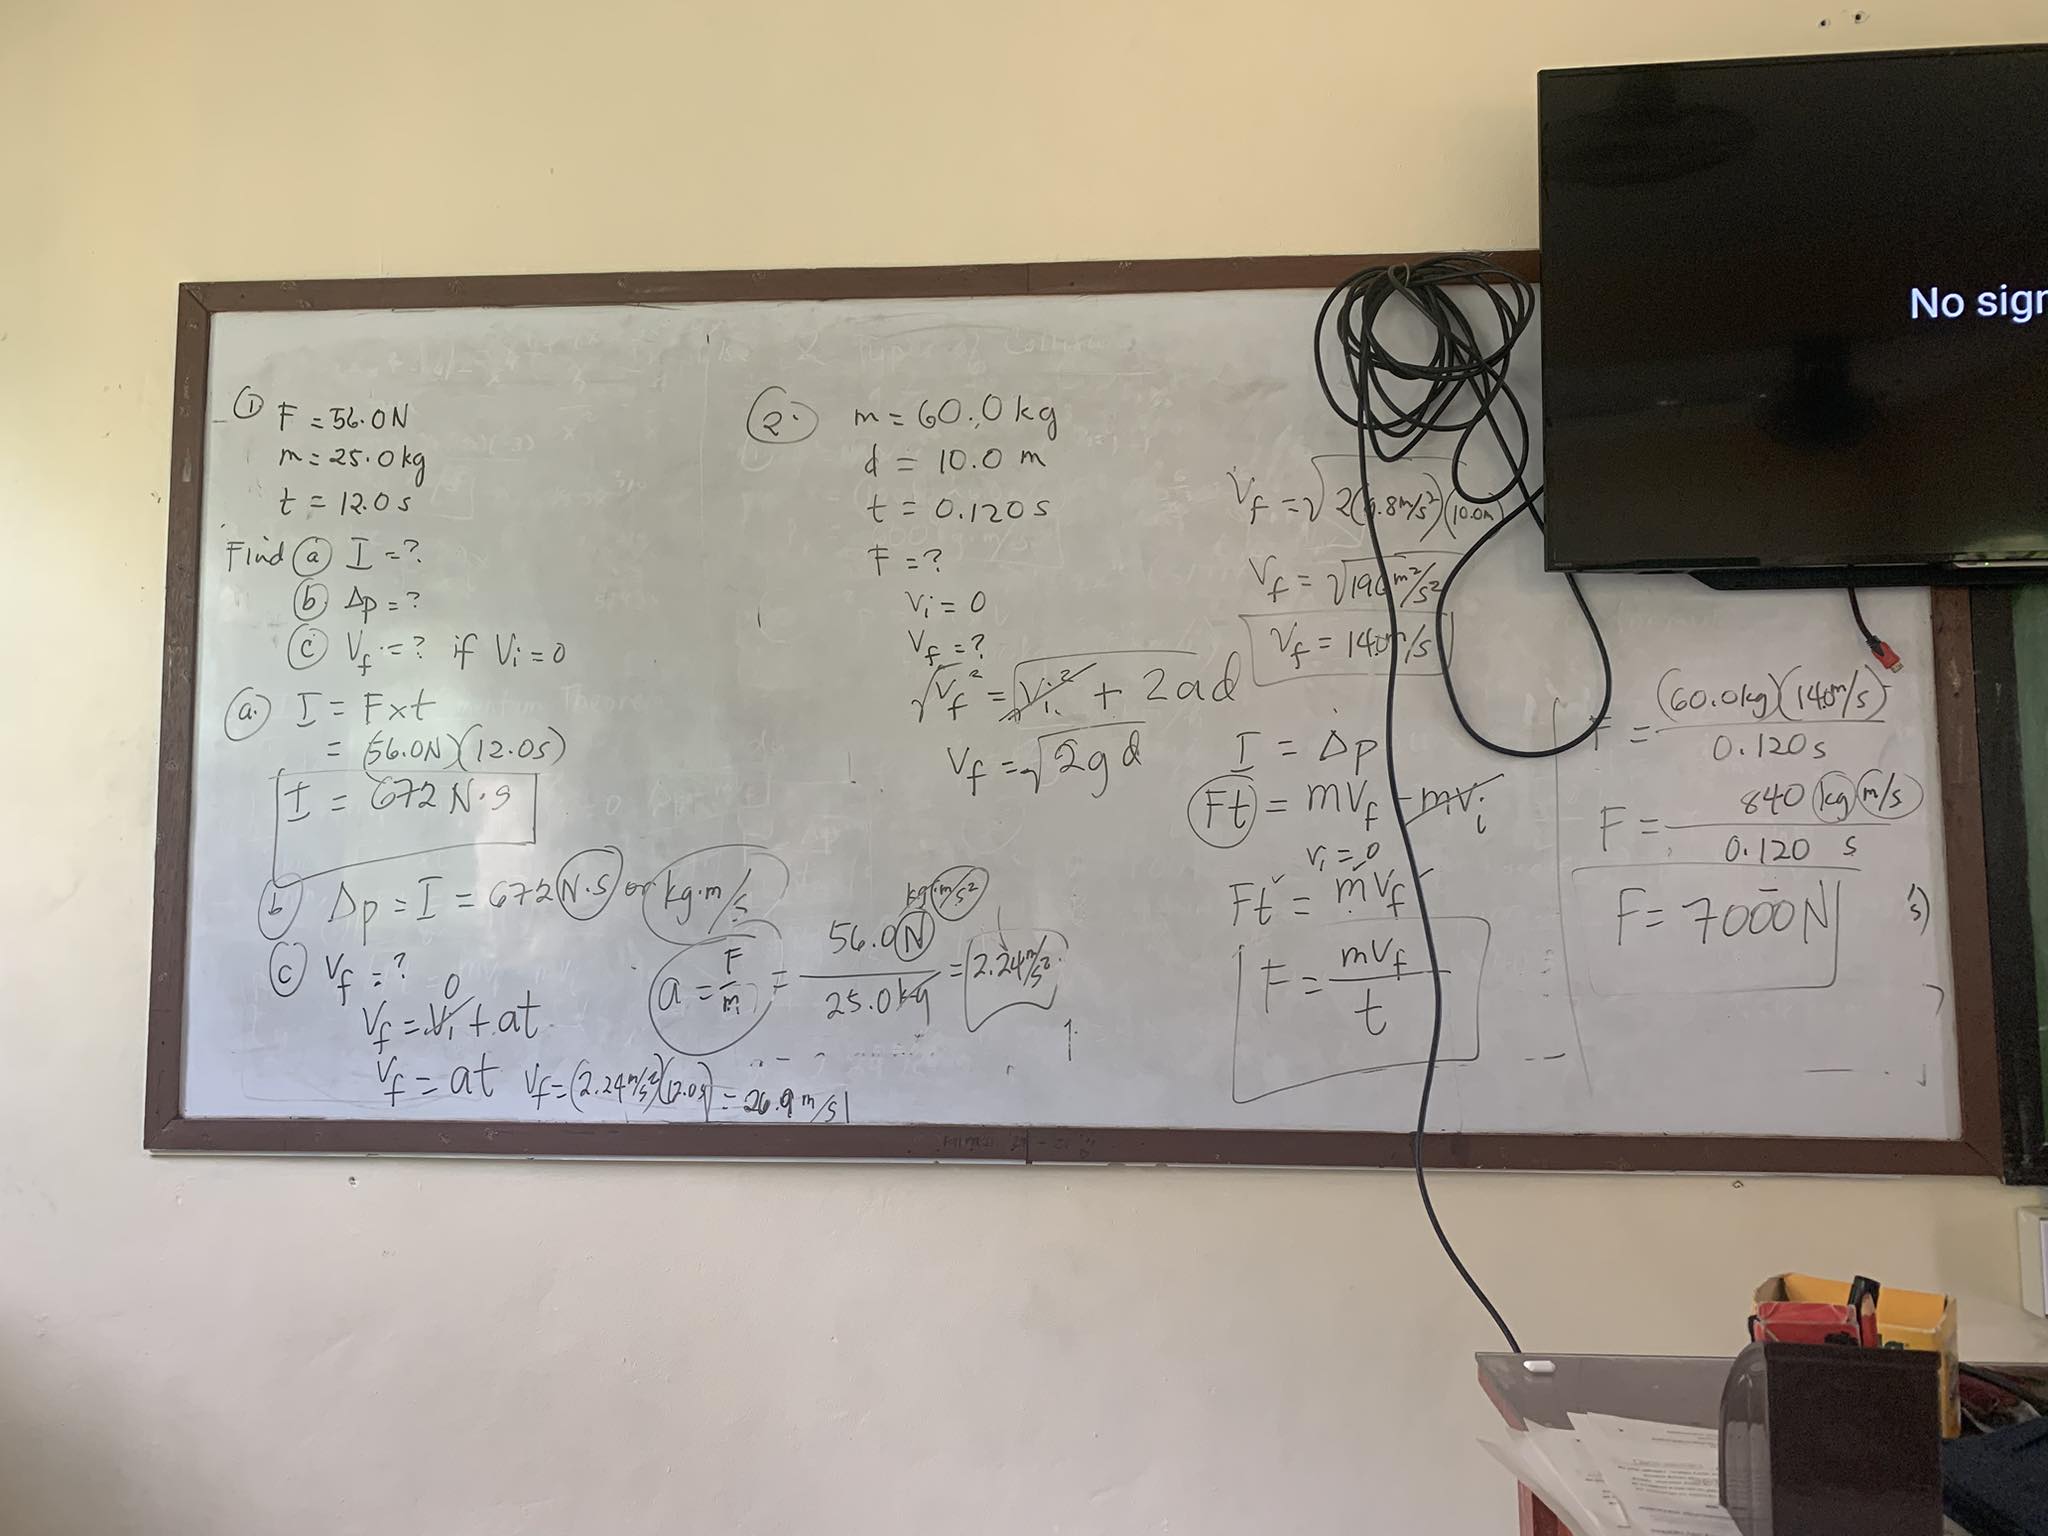 ① F = 56.0 N
m = 25.0 kg
t = 12.0 s
Find ⓐ I = ?
ⓑ Δp = ?
ⓒ Vf = ? if Vi = 0
ⓐ I = F x t
= (56.0N)(12.0s)
I = 672 N·s
ⓑ Δp = I = 672 N·s or kg·m/s
ⓒ Vf = ?
0
Vf = Vi + at
Vf = at Vf = (2.24 m/s²)(12.0s) = 26.9 m/s
kg·m/s²
a = F/m = 56.0 N / 25.0 kg = 2.24 m/s²
②. m = 60.0 kg
d = 10.0 m
t = 0.120 s
F = ?
Vi = 0
Vf = ?
√Vf² = √Vi² + 2ad
Vf = √2gd
Vf = √2(9.8m/s²)(10.0m)
Vf = √196 m²/s²
Vf = 14.0 m/s
I = Δp
Ft = mVf - mVi
Vi = 0
Ft = mVf
F = mVf / t
F = (60.0kg)(14.0m/s) / 0.120 s
F = 840 kg m/s / 0.120 s
F = 7000 N
No sign